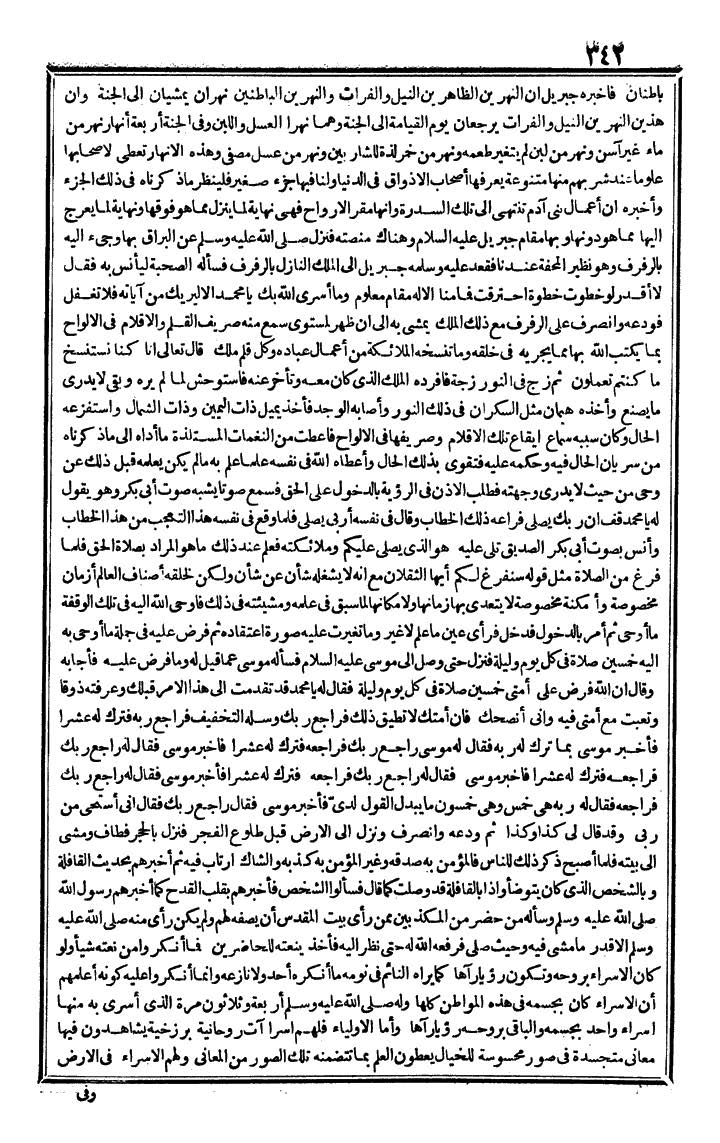 ٣٤٢
باطنان فاخبره جبريل ان النهرين الظاهرين النيل والفرات والنهرين الباطنين نهران يمشيان الى الجنة وان
هذين النهرين النيل والفرات يرجعان يوم القيامة الى الجنة وهما نهرا العسل واللبن وفى الجنة أربعة أنهار نهر من
ماء غير آسن ونهر من لبن لم يتغير طعمه ونهر من خمر لذة للشاربين ونهر من عسل مصفى وهذه الانهار تعطى لاصحابها
علوما عند شربهم منها متنوعة يعرفها أصحاب الاذواق فى الدنيا ولنا فيها جزء صغير فلينظر ما ذكرناه فى ذلك الجزء
وأخبره ان أعمال بنى آدم تنتهى الى تلك السدرة وانها مقر الارواح فهى نهاية لما ينزل مما هو فوقها ونهاية لما يعرج
اليها مما هو دونها وبها مقام جبريل عليه السلام وهناك منصته فنزل صلى الله عليه وسلم عن البراق بها وجىء اليه
بالرفرف وهو نظير المحفة عندنا فقعد عليه وسلمه جبريل الى الملك النازل بالرفرف فسأله الصحبة ليأنس به فقال
لا أقدر لو خطوت خطوة احترقت فما منا الا له مقام معلوم وما أسرى الله بك يا محمد الا ليريك من آياته فلا تغفل
فودعه وانصرف على الرفرف مع ذلك الملك يمشى به الى ان ظهر لمستوى سمع منه صريف القلم والاقلام فى الالواح
بما يكتب الله بها مما يجريه فى خلقه وما تنسخه الملائكة من أعمال عباده وكل قلم ملك قال تعالى انا كنا نستنسخ
ما كنتم تعملون ثم زج فى النور زجة فافرده الملك الذى كان معه وتأخر عنه فاستوحش لما لم يره وبقى لا يدرى
ما يصنع وأخذه هيمان مثل السكران فى ذلك النور وأصابه الوجد فأخذ يميل ذات اليمين وذات الشمال واستفزعه
الحال وكان سببه سماع ايقاع تلك الاقلام وصريفها فى الالواح فاعطت من النغمات المستلذة ما أداه الى ما ذكرناه
من سريان الحال فيه وحكمه عليه فتقوى بذلك الحال وأعطاه الله فى نفسه علما علم به ما لم يكن يعلمه قبل ذلك عن
وحى من حيث لا يدرى وجهته فطلب الاذن فى الرؤية بالدخول على الحق فسمع صوتا يشبه صوت أبى بكر وهو يقول
له يا محمد قف ان ربك يصلى فراعه ذلك الخطاب وقال فى نفسه أربى يصلى فلما وقع فى نفسه هذا التعجب من هذا الخطاب
وأنس بصوت أبى بكر الصديق تلى عليه هو الذى يصلى عليكم وملائكته فعلم عند ذلك ما هو المراد بصلاة الحق فلما
فرغ من الصلاة مثل قوله سنفرغ لكم أيها الثقلان مع انه لا يشغله شأن عن شأن ولكن لخلقه أصناف العالم أزمان
مخصوصة وأمكنة مخصوصة لا يتعدى بها زمانها ولا مكانها لما سبق فى علمه ومشيئته فى ذلك فاوحى الله اليه فى تلك الوقفة
ما أوحى ثم أمر بالدخول فدخل فرأى عين ما علم لا غير وما تغيرت عليه صورة اعتقاده ثم فرض عليه فى جملة ما أوحى به
اليه خمسين صلاة فى كل يوم وليلة فنزل حتى وصل الى موسى عليه السلام فسأله موسى عما قيل له وما فرض عليه فأجابه
وقال ان الله فرض على أمتى خمسين صلاة فى كل يوم وليلة فقال له يا محمد قد تقدمت الى هذا الامر قبلك وعرفته ذوقا
وتعبت مع أمتى فيه وانى أنصحك فان أمتك لا تطيق ذلك فراجع ربك وسله التخفيف فراجع ربه فترك له عشرا
فأخبر موسى بما ترك له ربه فقال له موسى راجع ربك فراجعه فترك له عشرا فاخبر موسى فقال له راجع ربك
فراجعه فترك له عشرا فاخبر موسى فقال له راجع ربك فراجعه فترك له عشرا فأخبر موسى فقال له راجع ربك
فراجعه فقال له ربه هى خمس وهى خمسون ما يبدل القول لدىّ فأخبر موسى فقال راجع ربك فقال انى أستحى من
ربى وقد قال لى كذا وكذا ثم ودعه وانصرف ونزل الى الارض قبل طلوع الفجر فنزل بالحجر فطاف ومشى
الى بيته فلما أصبح ذكر ذلك للناس فالمؤمن به صدقه وغير المؤمن به كذبه والشاك ارتاب فيه ثم أخبرهم بحديث القافلة
وبالشخص الذى كان يتوضأ واذا بالقافلة قد وصلت كما قال فسألوا الشخص فأخبرهم بقلب القدح كما أخبرهم رسول الله
صلى الله عليه وسلم وسأله من حضر من المكذبين ممن رأى بيت المقدس أن يصفه لهم ولم يكن رأى منه صلى الله عليه
وسلم الا قدر ما مشى فيه وحيث صلى فرفعه الله له حتى نظر اليه فأخذ ينعته للحاضرين فما أنكروا من نعته شيأ ولو
كان الاسراء بروحه وتكون رؤيا رآها كما يراه النائم فى نومه ما أنكره أحد ولا نازعه وانما أنكروا عليه كونه أعلمهم
أن الاسراء كان بجسمه فى هذه المواطن كلها وله صلى الله عليه وسلم أربعة وثلاثون مرة الذى أسرى به منها
اسراء واحد بجسمه والباقى بروحه رؤيا رآها وأما الاولياء فلهم اسراآت روحانية برزخية يشاهدون فيها
معانى متجسدة فى صور محسوسة للخيال يعطون العلم بما تتضمنه تلك الصور من المعانى ولهم الاسراء فى الارض
وفى